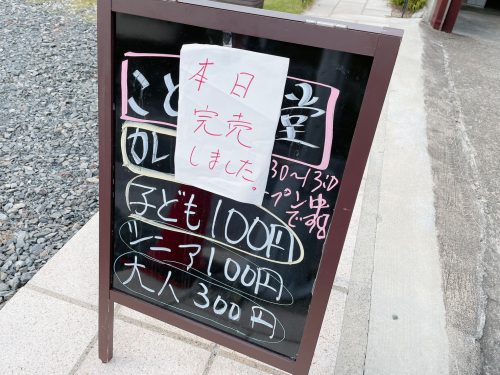 本日
完売
しました。
こど
堂
カレ
30〜13:0
プン中
です
子ども100円
シニア100円
大人300円